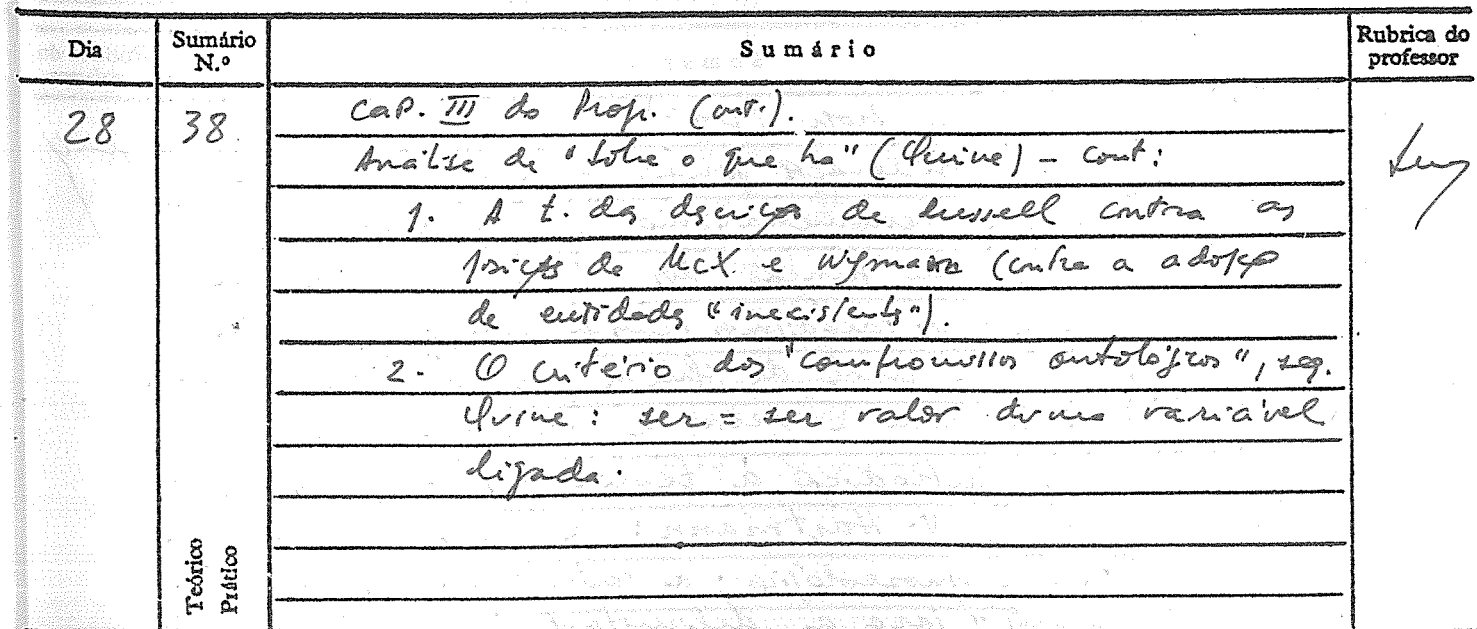 Dia Sumário N.º Sumário Rubrica do professor
28 38 Cap. III do Prog. (cont.).
Análise de "Sobre o que há" (Quine) - cont:
1. A t. das descrições de Russell contra as
posições de McX e Wyman (contra a adopção
de entidades "inexistentes").
2. O critério dos "compromissos ontológicos", seg.
Quine: ser = ser valor duma variável
ligada.
Teórico
Prático